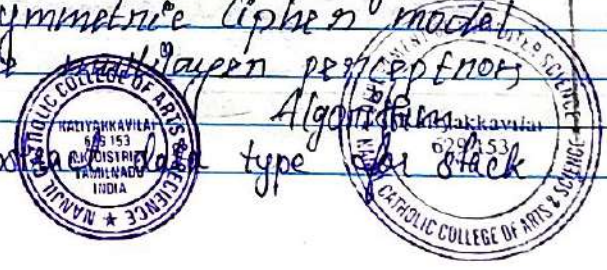 symmetric cipher model
multilayer perceptron
Algorithm
data type for stack
NANJIL CATHOLIC COLLEGE OF ARTS & SCIENCE
KALIYAKKAVILAI
629 153
K.K.DISTRICT
TAMILNADU
INDIA
629 153
CATHOLIC COLLEGE OF ARTS & SCIENCE